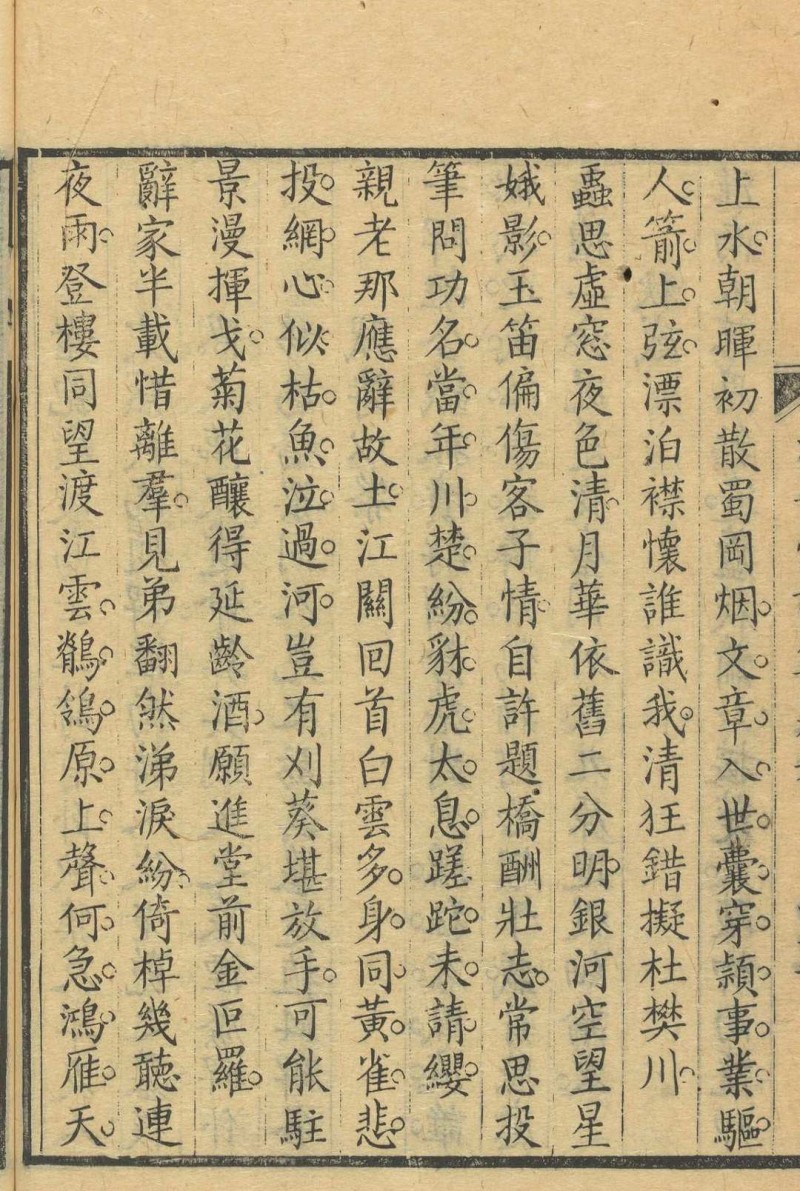 上水朝暉初散蜀岡烟文章入世囊穿穎事業驅
人箭上弦漂泊襟懷誰識我清狂錯擬杜樊川
蟲思虛窓夜色清月華依舊二分明銀河空望星
娥影玉笛偏傷客子情自許題橋酬壯志常思投
筆問功名當年川楚紛豺虎太息蹉跎未請纓
親老那應辭故土江關回首白雲多身同黃雀悲
投網心似枯魚泣過河豈有刈葵堪放手可能駐
景漫揮戈菊花釀得延齡酒願進堂前金叵羅
辭家半載惜離羣見弟翻然涕淚紛倚棹幾聽連
夜雨登樓同望渡江雲鶺鴒原上聲何急鴻雁天